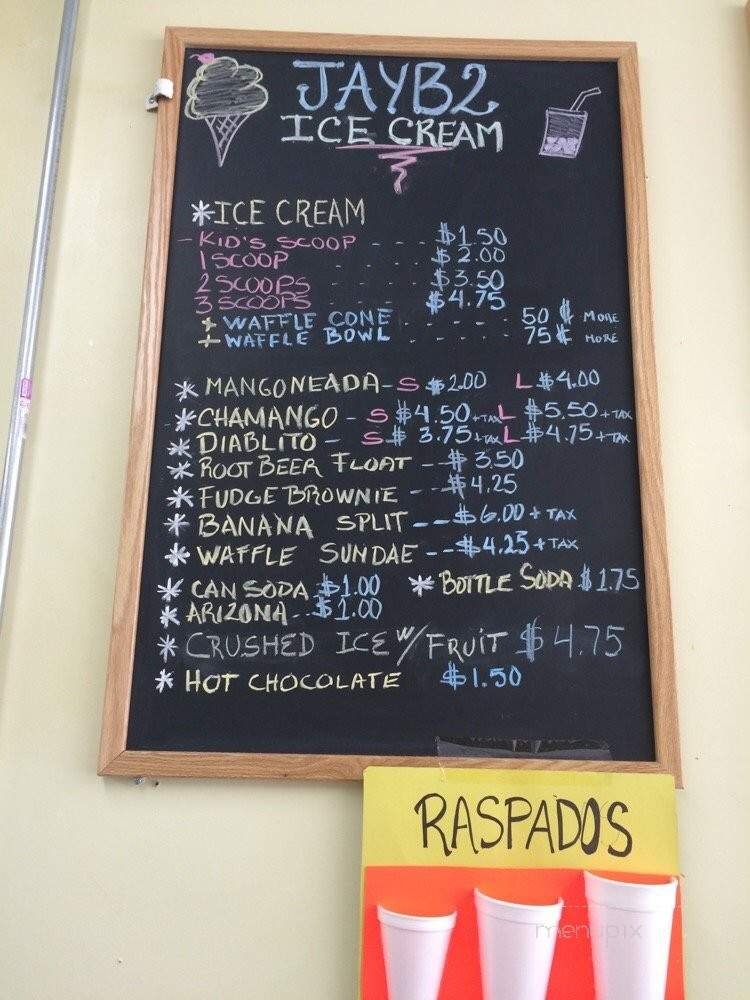 JAYB2
ICE CREAM
*ICE CREAM
- KID'S SCOOP - - - - $1.50
1 SCOOP - - - - $2.00
2 SCOOPS - - - - $3.50
3 SCOOPS - - - - $4.75
+ WAFFLE CONE - - - - - - 50¢ MORE
+ WAFFLE BOWL - - - - - - 75¢ MORE
* MANGONEADA - S $2.00 L $4.00
* CHAMANGO - S $4.50 + TAX L $5.50 + TAX
* DIABLITO - S $3.75 + TAX L $4.75 + TAX
* ROOT BEER FLOAT -- $3.50
* FUDGE BROWNIE --- $4.25
* BANANA SPLIT -- $6.00 + TAX
* WAFFLE SUNDAE -- $4.25 + TAX
* CAN SODA $1.00 * BOTTLE SODA $1.75
* ARIZONA -- $1.00
* CRUSHED ICE W/ FRUIT $4.75
* HOT CHOCOLATE $1.50
RASPADOS
menupix